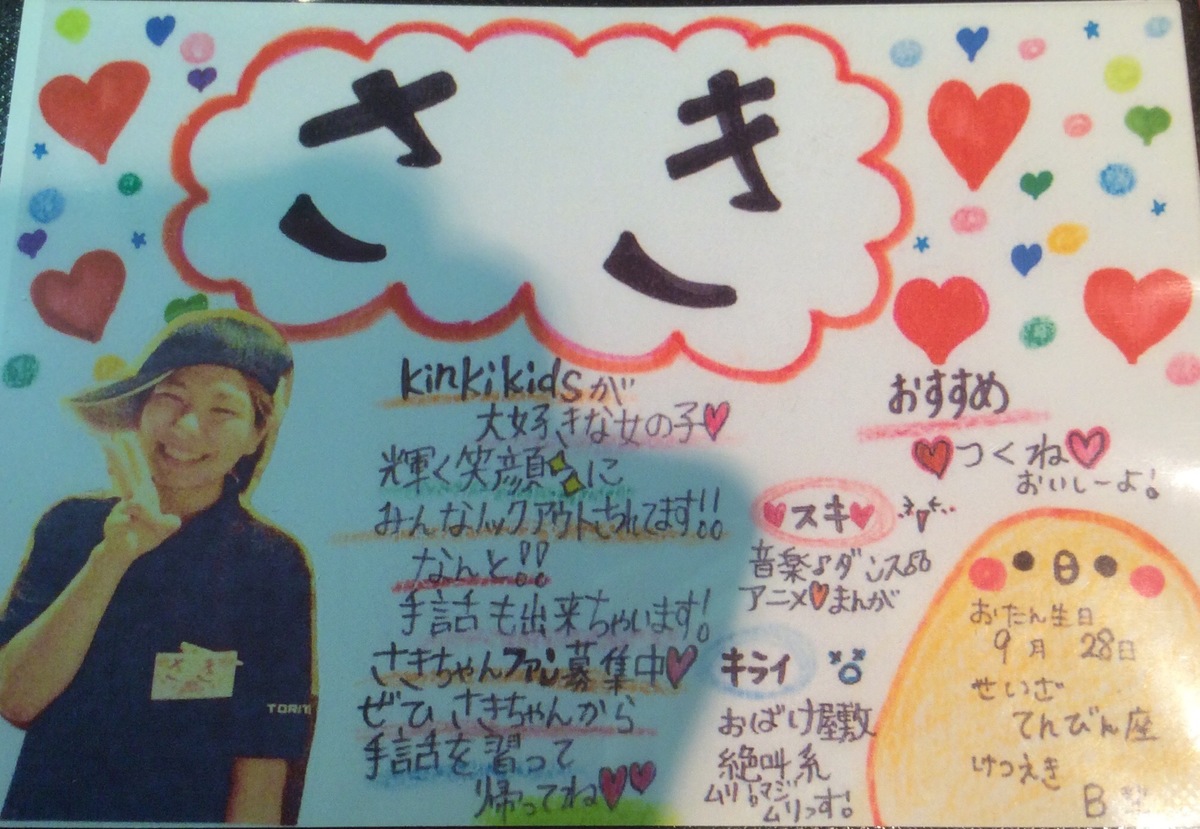 さき
kinkikidsが
大好きな女の子
輝く笑顔に
みんなノックアウトされてます!!
なんと!!
手話も出来ちゃいます!
さきちゃんファン募集中
ぜひ さきちゃんから
手話を習って
帰ってね
おすすめ
つくね
おいしーよ!
スキ
音楽♪ダンス
アニメ まんが
キライ
おばけ屋敷
絶叫系
ムリ。マジ
ムリっす!
おたん生日
9月 28日
せいざ
てんびん座
けつえき
B型
さき
TORI